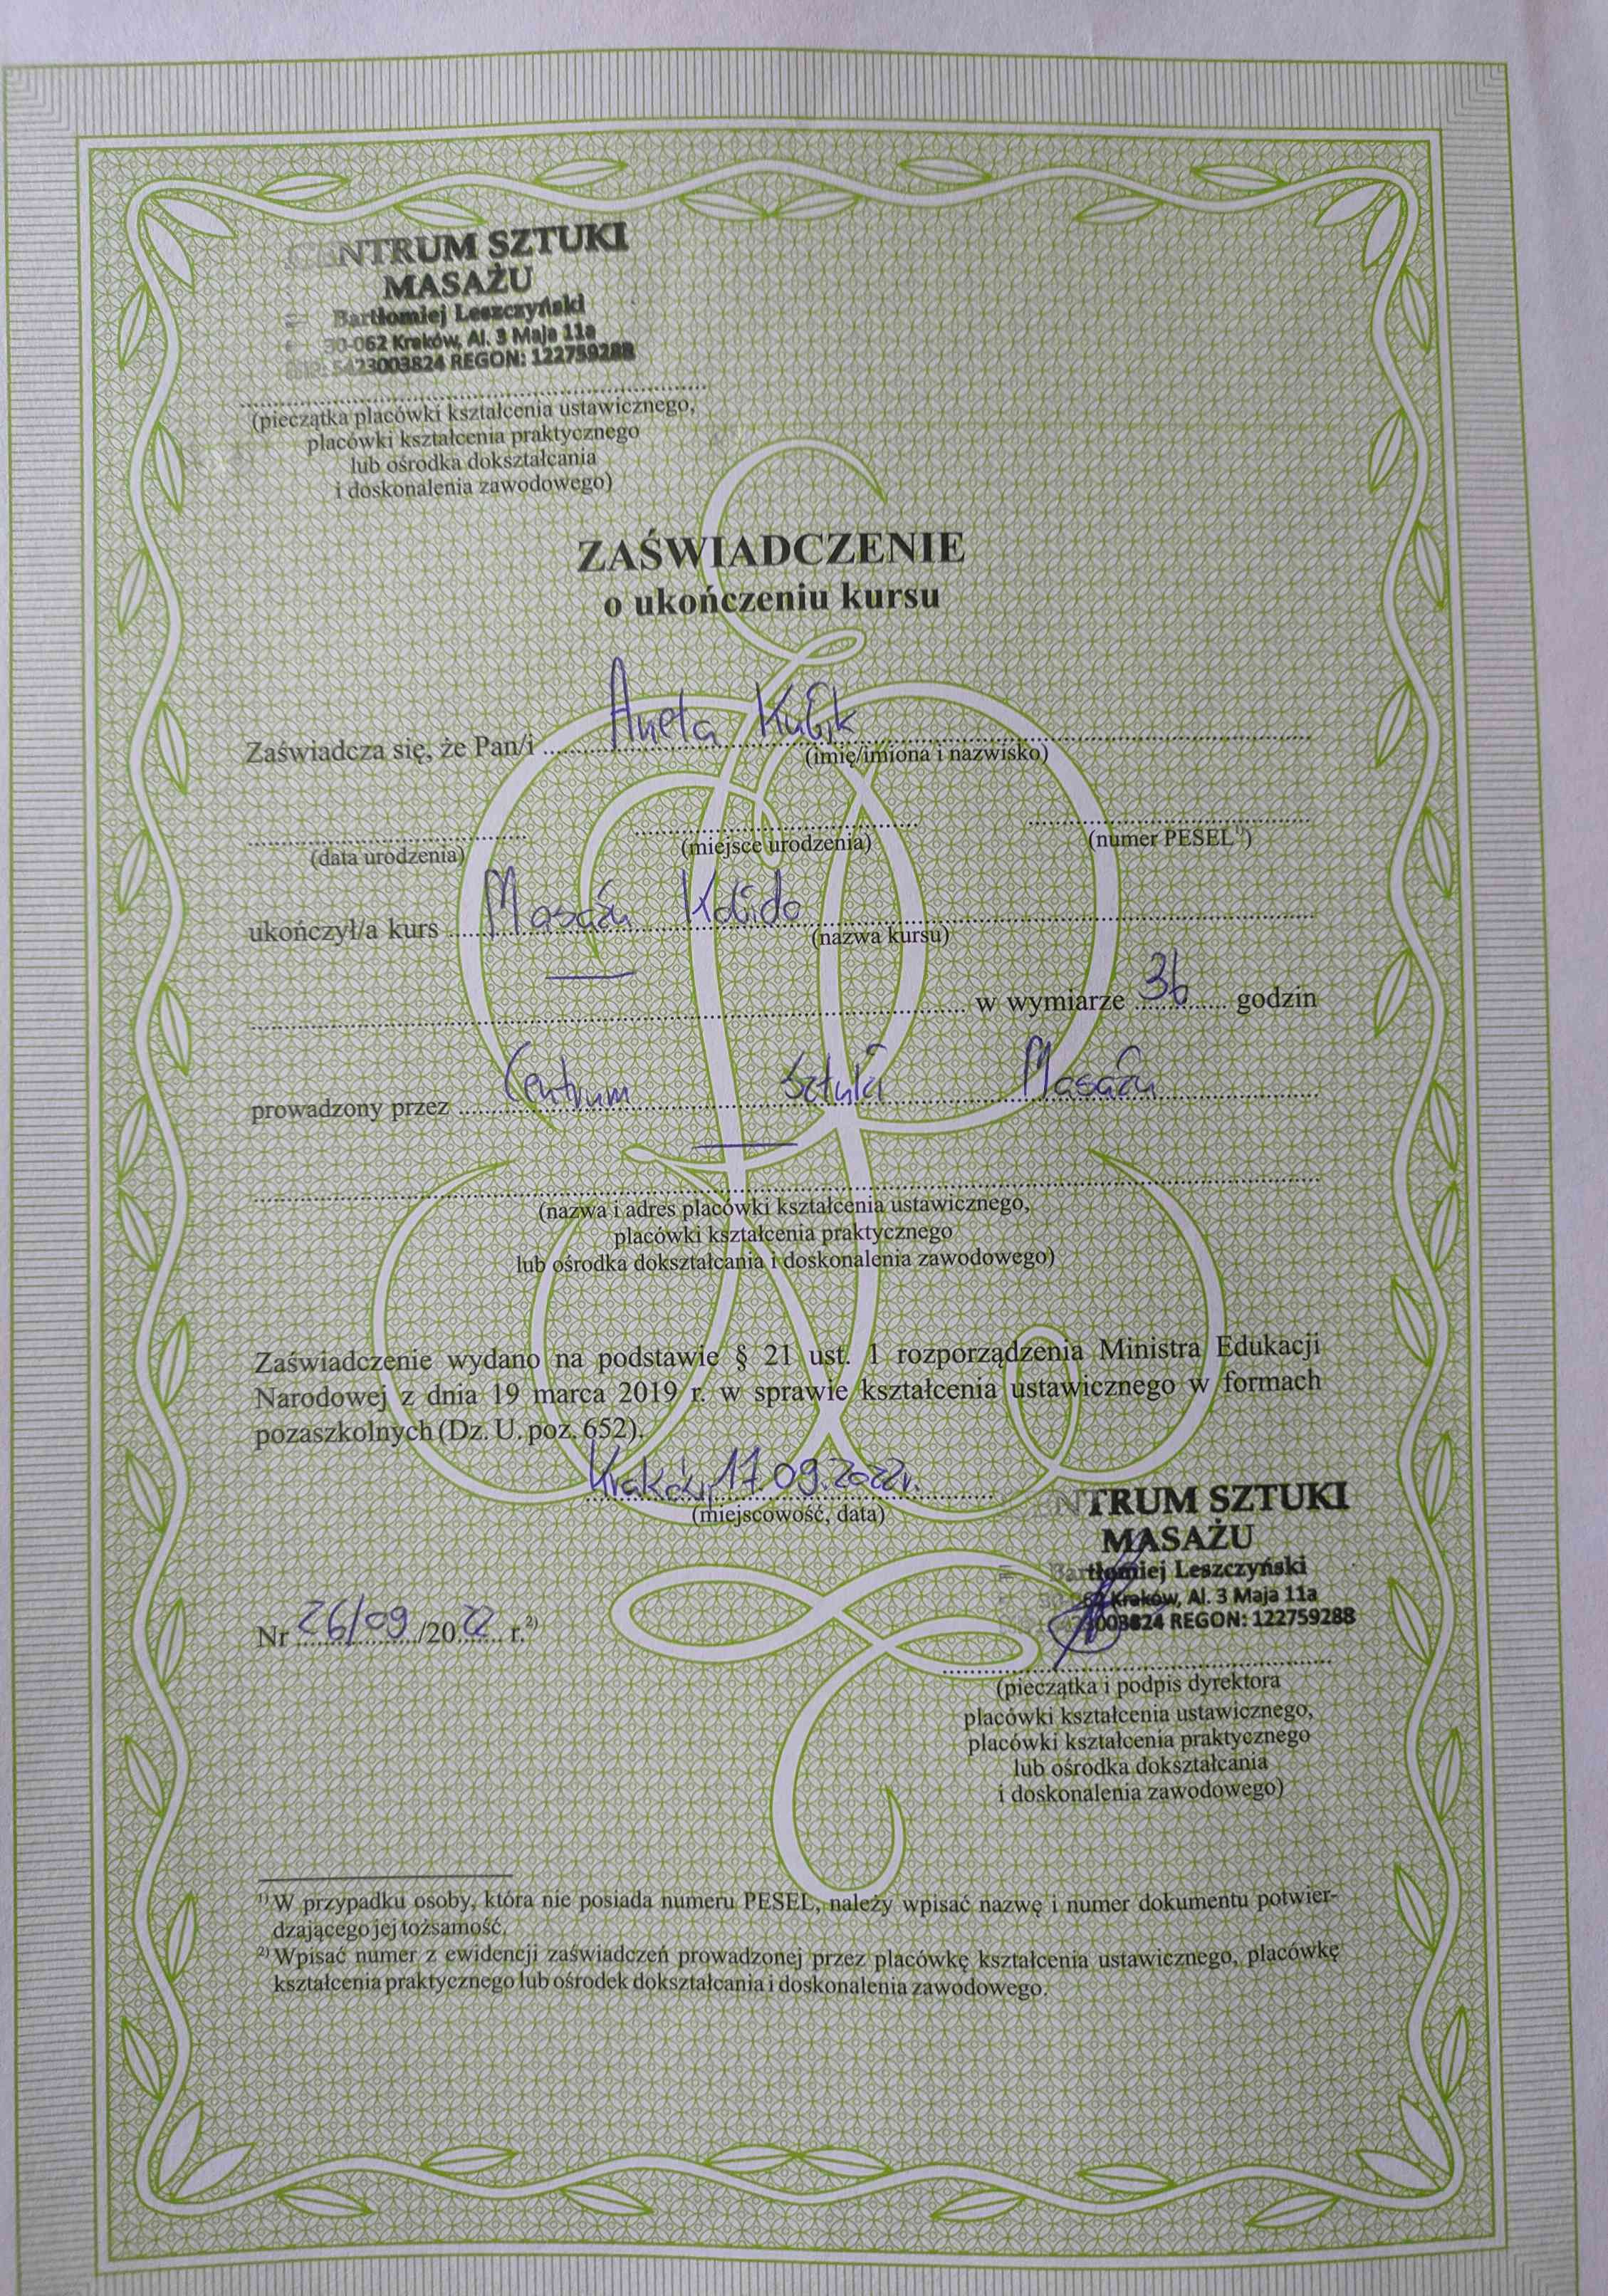 CENTRUM SZTUKI
MASAŻU
Bartłomiej Leszczyński
30-062 Kraków, Al. 3 Maja 11a
NIP: 5423003824 REGON: 122759288
(pieczątka placówki kształcenia ustawicznego,
placówki kształcenia praktycznego
lub ośrodka dokształcania
i doskonalenia zawodowego)
ZAŚWIADCZENIE
o ukończeniu kursu
Zaświadcza się, że Pan/i Aneta Kubik
(imię/imiona i nazwisko)
(data urodzenia) (miejsce urodzenia) (numer PESEL¹⁾)
ukończył/a kurs Masażu Kobido
(nazwa kursu)
w wymiarze 36 godzin
prowadzony przez Centrum Sztuki Masażu
(nazwa i adres placówki kształcenia ustawicznego,
placówki kształcenia praktycznego
lub ośrodka dokształcania i doskonalenia zawodowego)
Zaświadczenie wydano na podstawie § 21 ust. 1 rozporządzenia Ministra Edukacji
Narodowej z dnia 19 marca 2019 r. w sprawie kształcenia ustawicznego w formach
pozaszkolnych (Dz. U. poz. 652).
Kraków, 17.09.2022r.
(miejscowość, data)
NTRUM SZTUKI
MASAŻU
Bartłomiej Leszczyński
Kraków, Al. 3 Maja 11a
003824 REGON: 122759288
Nr 26/09/2022 r.²⁾
(pieczątka i podpis dyrektora
placówki kształcenia ustawicznego,
placówki kształcenia praktycznego
lub ośrodka dokształcania
i doskonalenia zawodowego)
¹⁾ W przypadku osoby, która nie posiada numeru PESEL, należy wpisać nazwę i numer dokumentu potwier-
dzającego jej tożsamość.
²⁾ Wpisać numer z ewidencji zaświadczeń prowadzonej przez placówkę kształcenia ustawicznego, placówkę
kształcenia praktycznego lub ośrodek dokształcania i doskonalenia zawodowego.